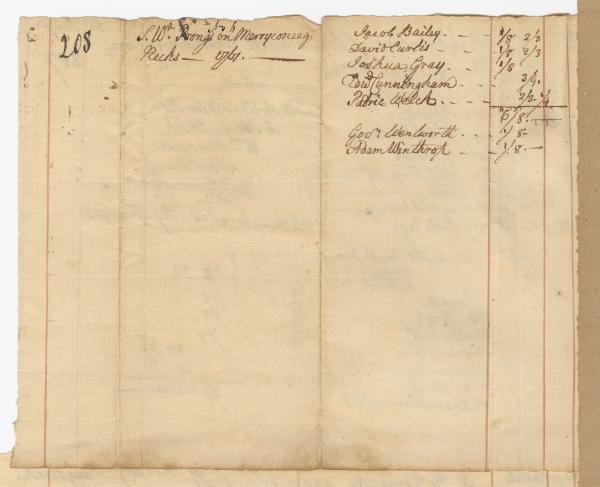 208
S. Wt. Prongs on Merryconeeg
Necks — 1767.
Jacob Bailey. — 1/8 2/3
David Curtis — 1/8 2/3
Joshua Gray. — 1/8
Edwd Cunningham. — 3/4.
Patric Welch. — 2/3. 1/4
6/8.
Govr. Wentworth. — 1/8
Adam Winthrop — 1/8. —